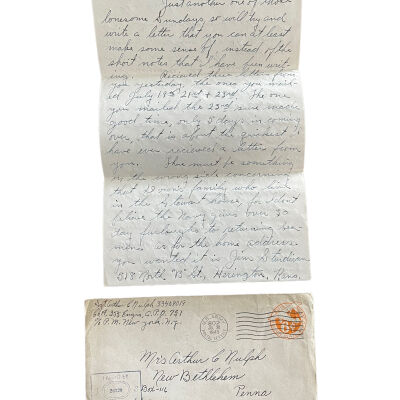 Just another one of those
lonesome Sundays, so will try and
write a letter that you can at least
make some sense of, instead of the
short notes that I have been writ-
ing. Recieved three letters from
you yesterday, the ones you mail-
ed July 19th 21st + 23rd. The one
you mailed the 23rd sure made
good time, only 5 days in coming
over, that is about the quickest I
have ever recieved a letter from
you. There must be something
on the wrong side concerning
that Downs family who live
in the Stewart house for I don't
believe the Navy gives over 30
day furloughs to returning sea-
men. As for the home address
you wanted it is Jim Sturdivan
518 North 13 St, Herington, Kans.
Arthur C Nulph 33429019
Engrs, A.P.O. 751
% P.M. New York, N.Y.
U.S. ARMY
1945
Mrs Arthur C Nulph
New Bethlehem
Box-116
Penna